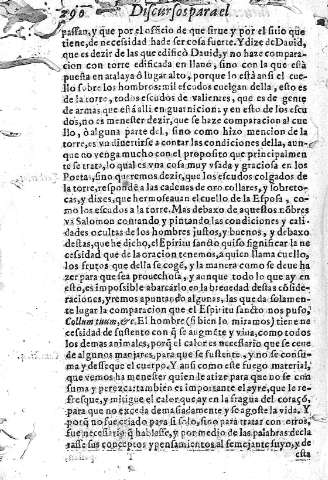 290 Discursos para el
passan, y que por el oficio de que sirue y por el sitio que
tiene, de necessidad ha de ser cosa fuerte. Y dize de Dauid,
que es dezir de las que edificò Dauid, y no haze compara
cion con torre edificada en llano, sino con la que està
puesta en atalaya ò lugar alto, porque lo està ansi el cue
llo sobre los hombros: mil escudos cuelgan della, esto es
de la torre, todos escudos de valientes, que es de gente
de armas, que està alli en guarnicion: y en esto de los escu
dos, no es menester dezir, que se haze comparacion al cue
llo, ò alguna parte del, sino como hizo mencion de la
torre, es vn diuertirse a contar las condiciones della, aun-
que no venga mucho con el proposito que principalmen
te se trata, lo qual es vna cosa muy vsada y graciosa en los
Poetas, sino queremos dezir, que los escudos colgados de
la torre, responde a las cadenas de oro collares, y
y dixes, que hermosean el cuello de la Esposa, co-
mo los escudos a la torre. Mas debaxo de aquestos nõbres
va Salomon contando y pintando las condiciones y cali-
dades ocultas de los hombres justos, y buenos, y debaxo
destas, que he dicho, el Espiritu sancto quiso significar la ne
cessidad que de la oracion tenemos, a quien llama cuello,
los frutos que della se coge, y la manera como se deue ha
zer para que sea prouechosa, y aunque todo lo que ay en
esto, es impossible abarcarlo en la breuedad destas cõside-
raciones, yremos apuntãdo algunas, las que da solamen-
te lugar la comparacion que el Espiritu sancto nos puso,
Collum tuum, &c. El hombre (si bien lo miramos) tiene ne
cessidad de sustento con q̃ se augmẽte y viua, como todos
los demas animales, porq̃ el calor es necessario que se ceue
de algunos manjares, para que se sustente, y no se consu-
ma y desseque el cuerpo. Y ansi como este fuego material,
que vemos ha menester quien le atize para que no se con
suma y perezca: tambien es importante el ayre, que lo re-
fresque, y mitigue el calor que ay en la fragua del coraçõ,
para que no exceda demasiadamente y se agoste la vida. Y
porq̃ no fue criado para si solo, sino para tratar con otros,
fue necessario q̃ hablasse, y por medio de las palabras decla
rasse sus conceptos y pensamientos al semejante suyo, y de
esta